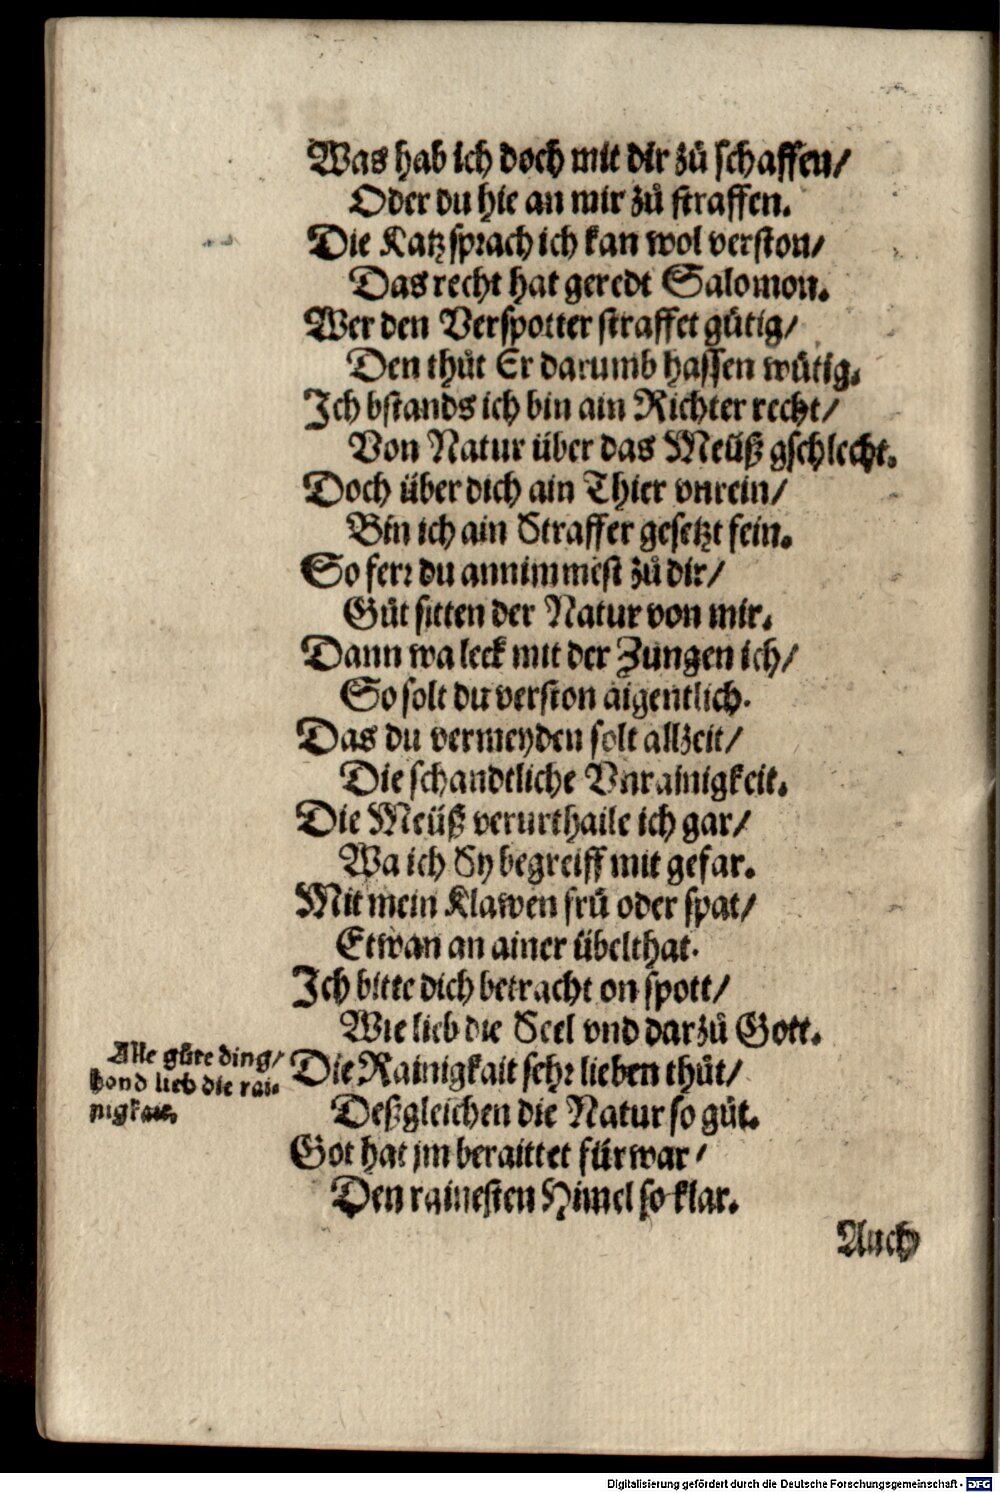 Was hab ich doch mit dir zů schaffen/
Oder du hie an mir zů straffen.
Die Katz sprach ich kan wol verston/
Das recht hat geredt Salomon.
Wer den Verspotter straffet gütig/
Den thůt Er darumb hassen wütig.
Ich bstands ich bin ain Richter recht/
Von Natur über das Meüß gschlecht.
Doch über dich ain Thier vnrein/
Bin ich ain Straffer gesetzt fein.
So ferr du annimmest zů dir/
Gůt sitten der Natur von mir.
Dann wa leck mit der Zungen ich/
So solt du verston aigentlich.
Das du vermeyden solt allzeit/
Die schandtliche Vnrainigkeit.
Die Meüß verurthaile ich gar/
Wa ich Sy begreiff mit gefar.
Mit mein Klawen frů oder spat/
Etwan an ainer übelthat.
Ich bitte dich betracht on spott/
Wie lieb die Seel vnd darzů Gott.
Alle gůte ding/
hond lieb die rai-
nigkait.
Die Rainigkait sehr lieben thůt/
Deßgleichen die Natur so gůt.
Got hat jm beraittet fürwar/
Den rainesten Himel so klar.
Auch
Digitalisierung gefördert durch die Deutsche Forschungsgemeinschaft - DFG